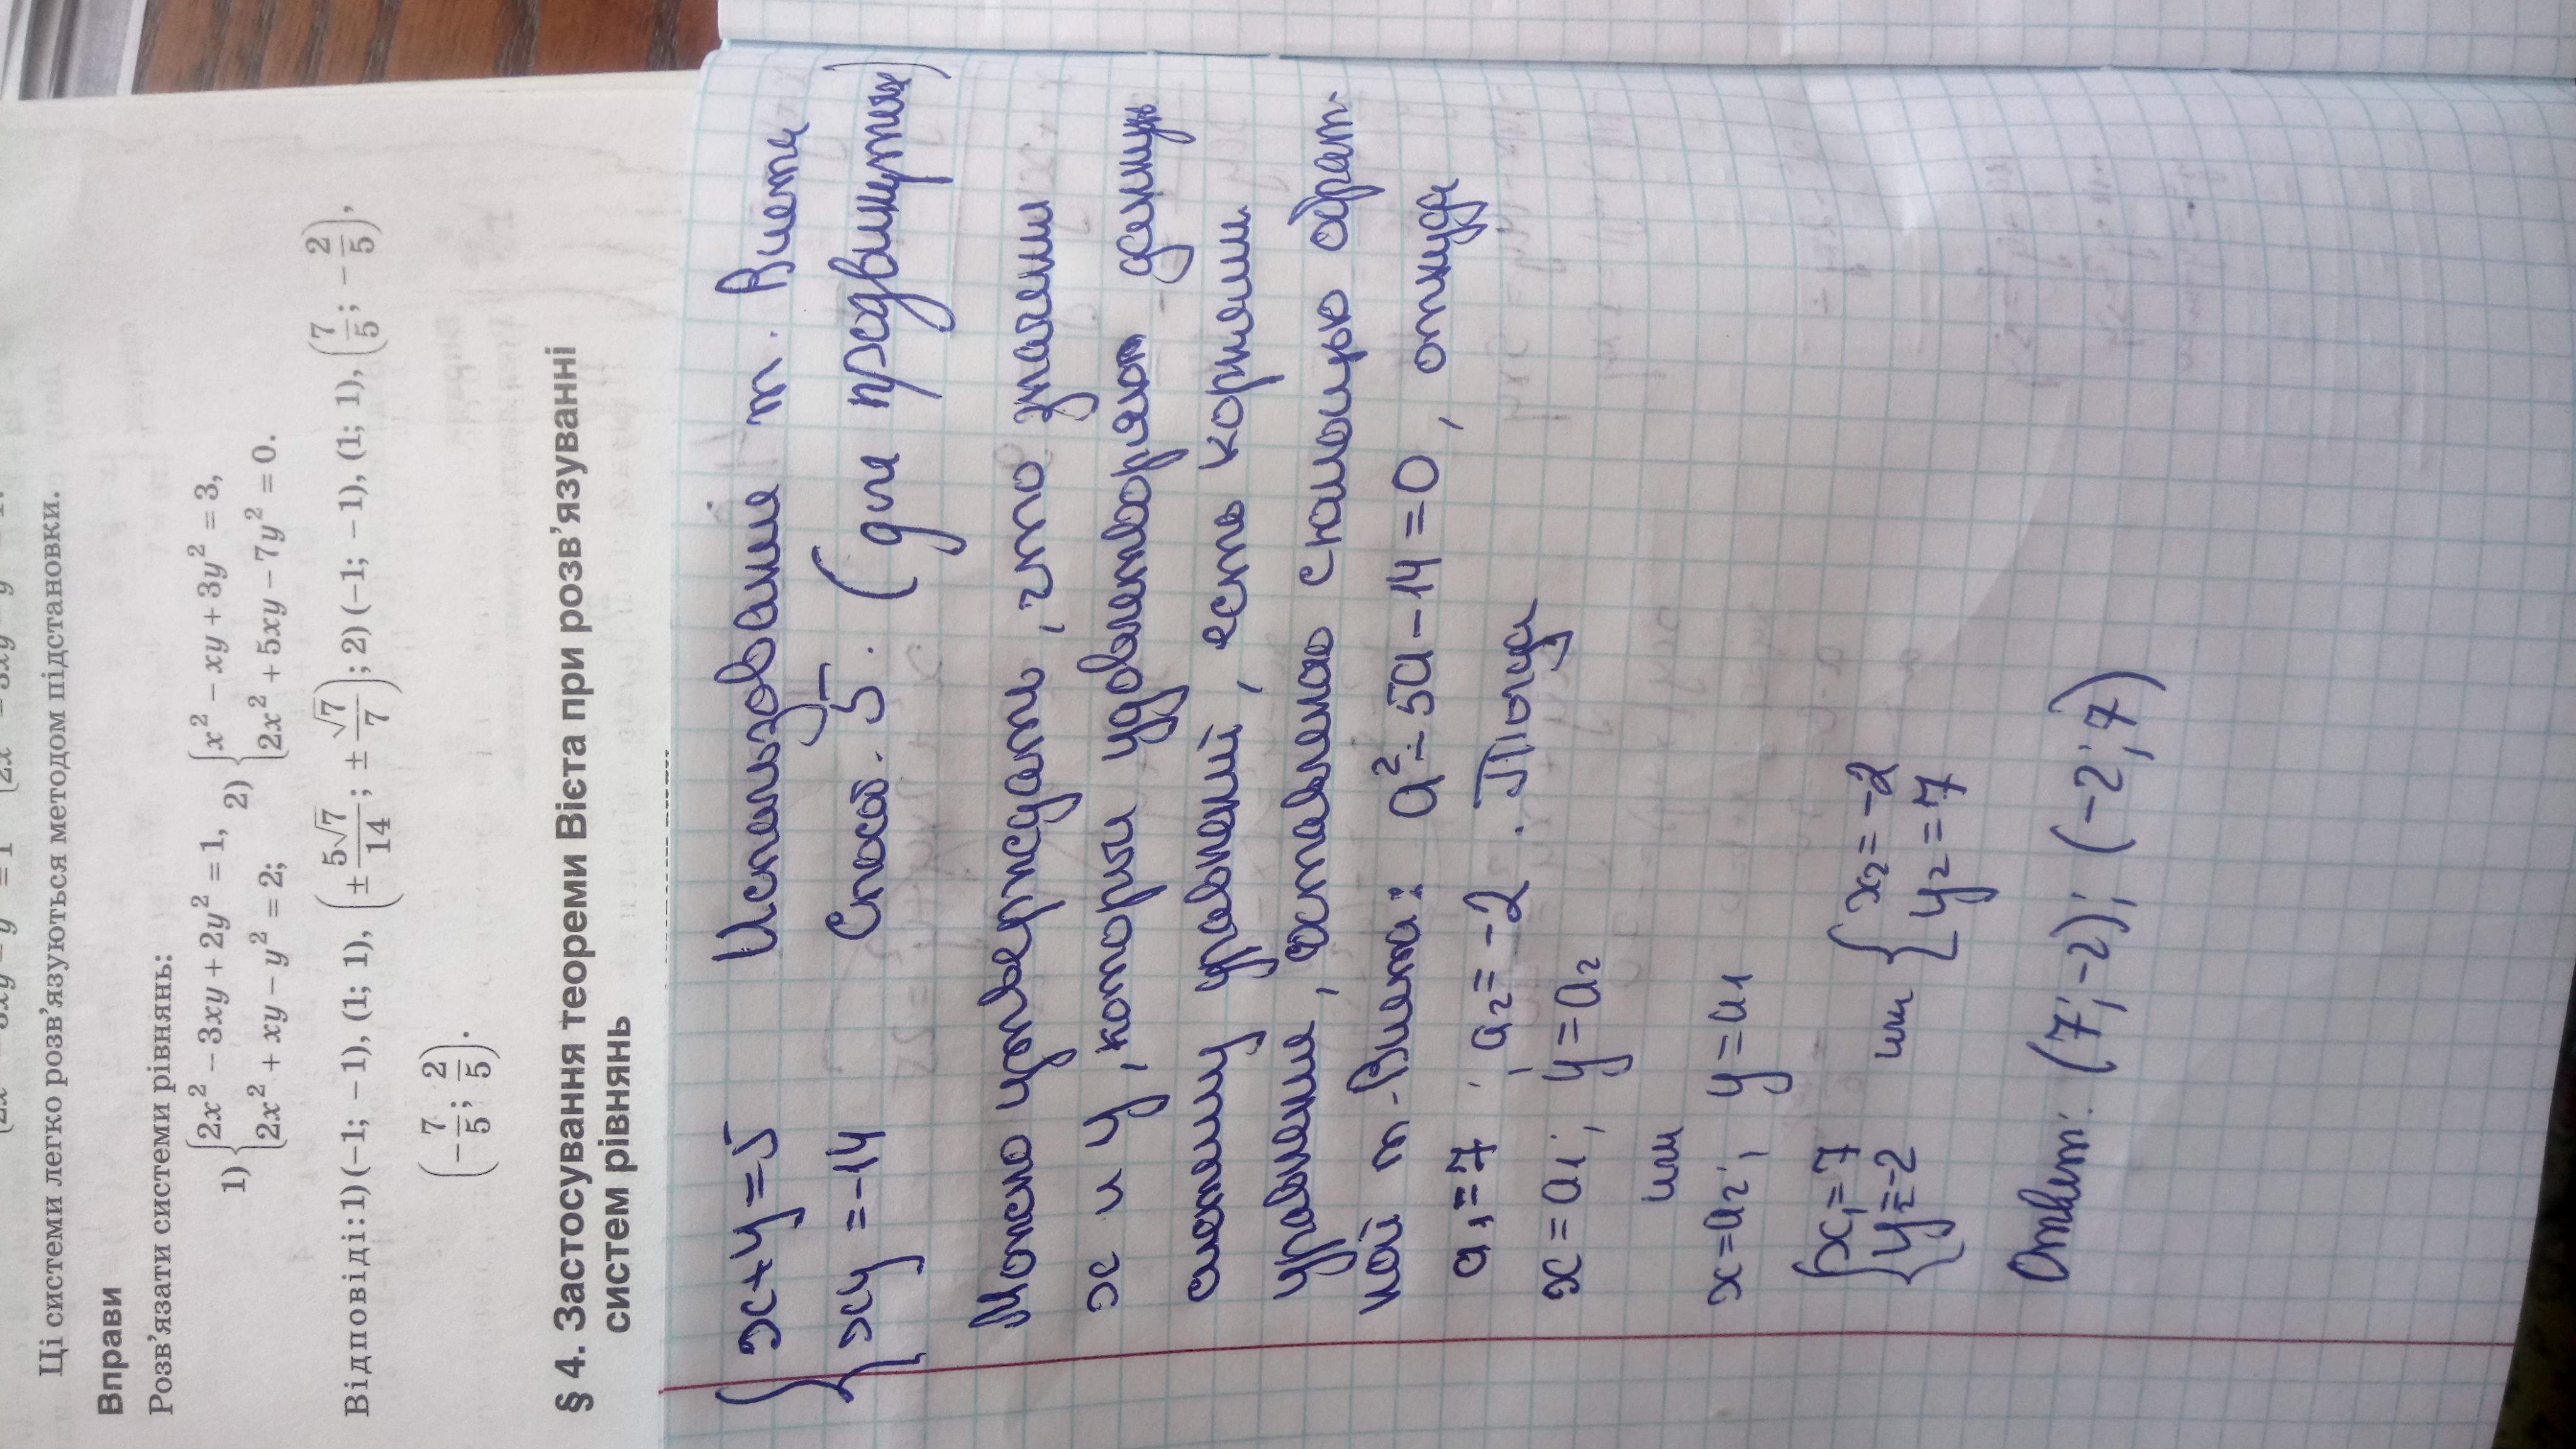 Ці системи легко розв'язуються методом підстановки.
Вправи
Розв'язати системи рівнянь:
1) {2x² − 3xy + 2y² = 1, 2x² + xy − y² = 2; 2) {x² − xy + 3y² = 3, 2x² + 5xy − 7y² = 0.
Відповіді: 1) (−1; −1), (1; 1), (± 5√7/14; ± √7/7); 2) (−1; −1), (1; 1), (7/5; −2/5),
(−7/5; 2/5).
§ 4. Застосування теореми Вієта при розв'язуванні
систем рівнянь
{x+y=5 Использование т. Виета
xy=-14 Способ. 5. (для продвинутых)
Можно утверждать, что значения
x и y, которые удовлетворяют данную
систему уравнений, есть корнями
уравнения, составленого спомощью обрат-
ной т. Виета: a²-5a-14=0, откуда
a₁=7; a₂=-2. Тогда
x=a₁; y=a₂
или
x=a₂; y=a₁
{x₁=7 или {x₂=-2
y₂=-2 y₂=7
Ответ: (7;-2); (-2;7)